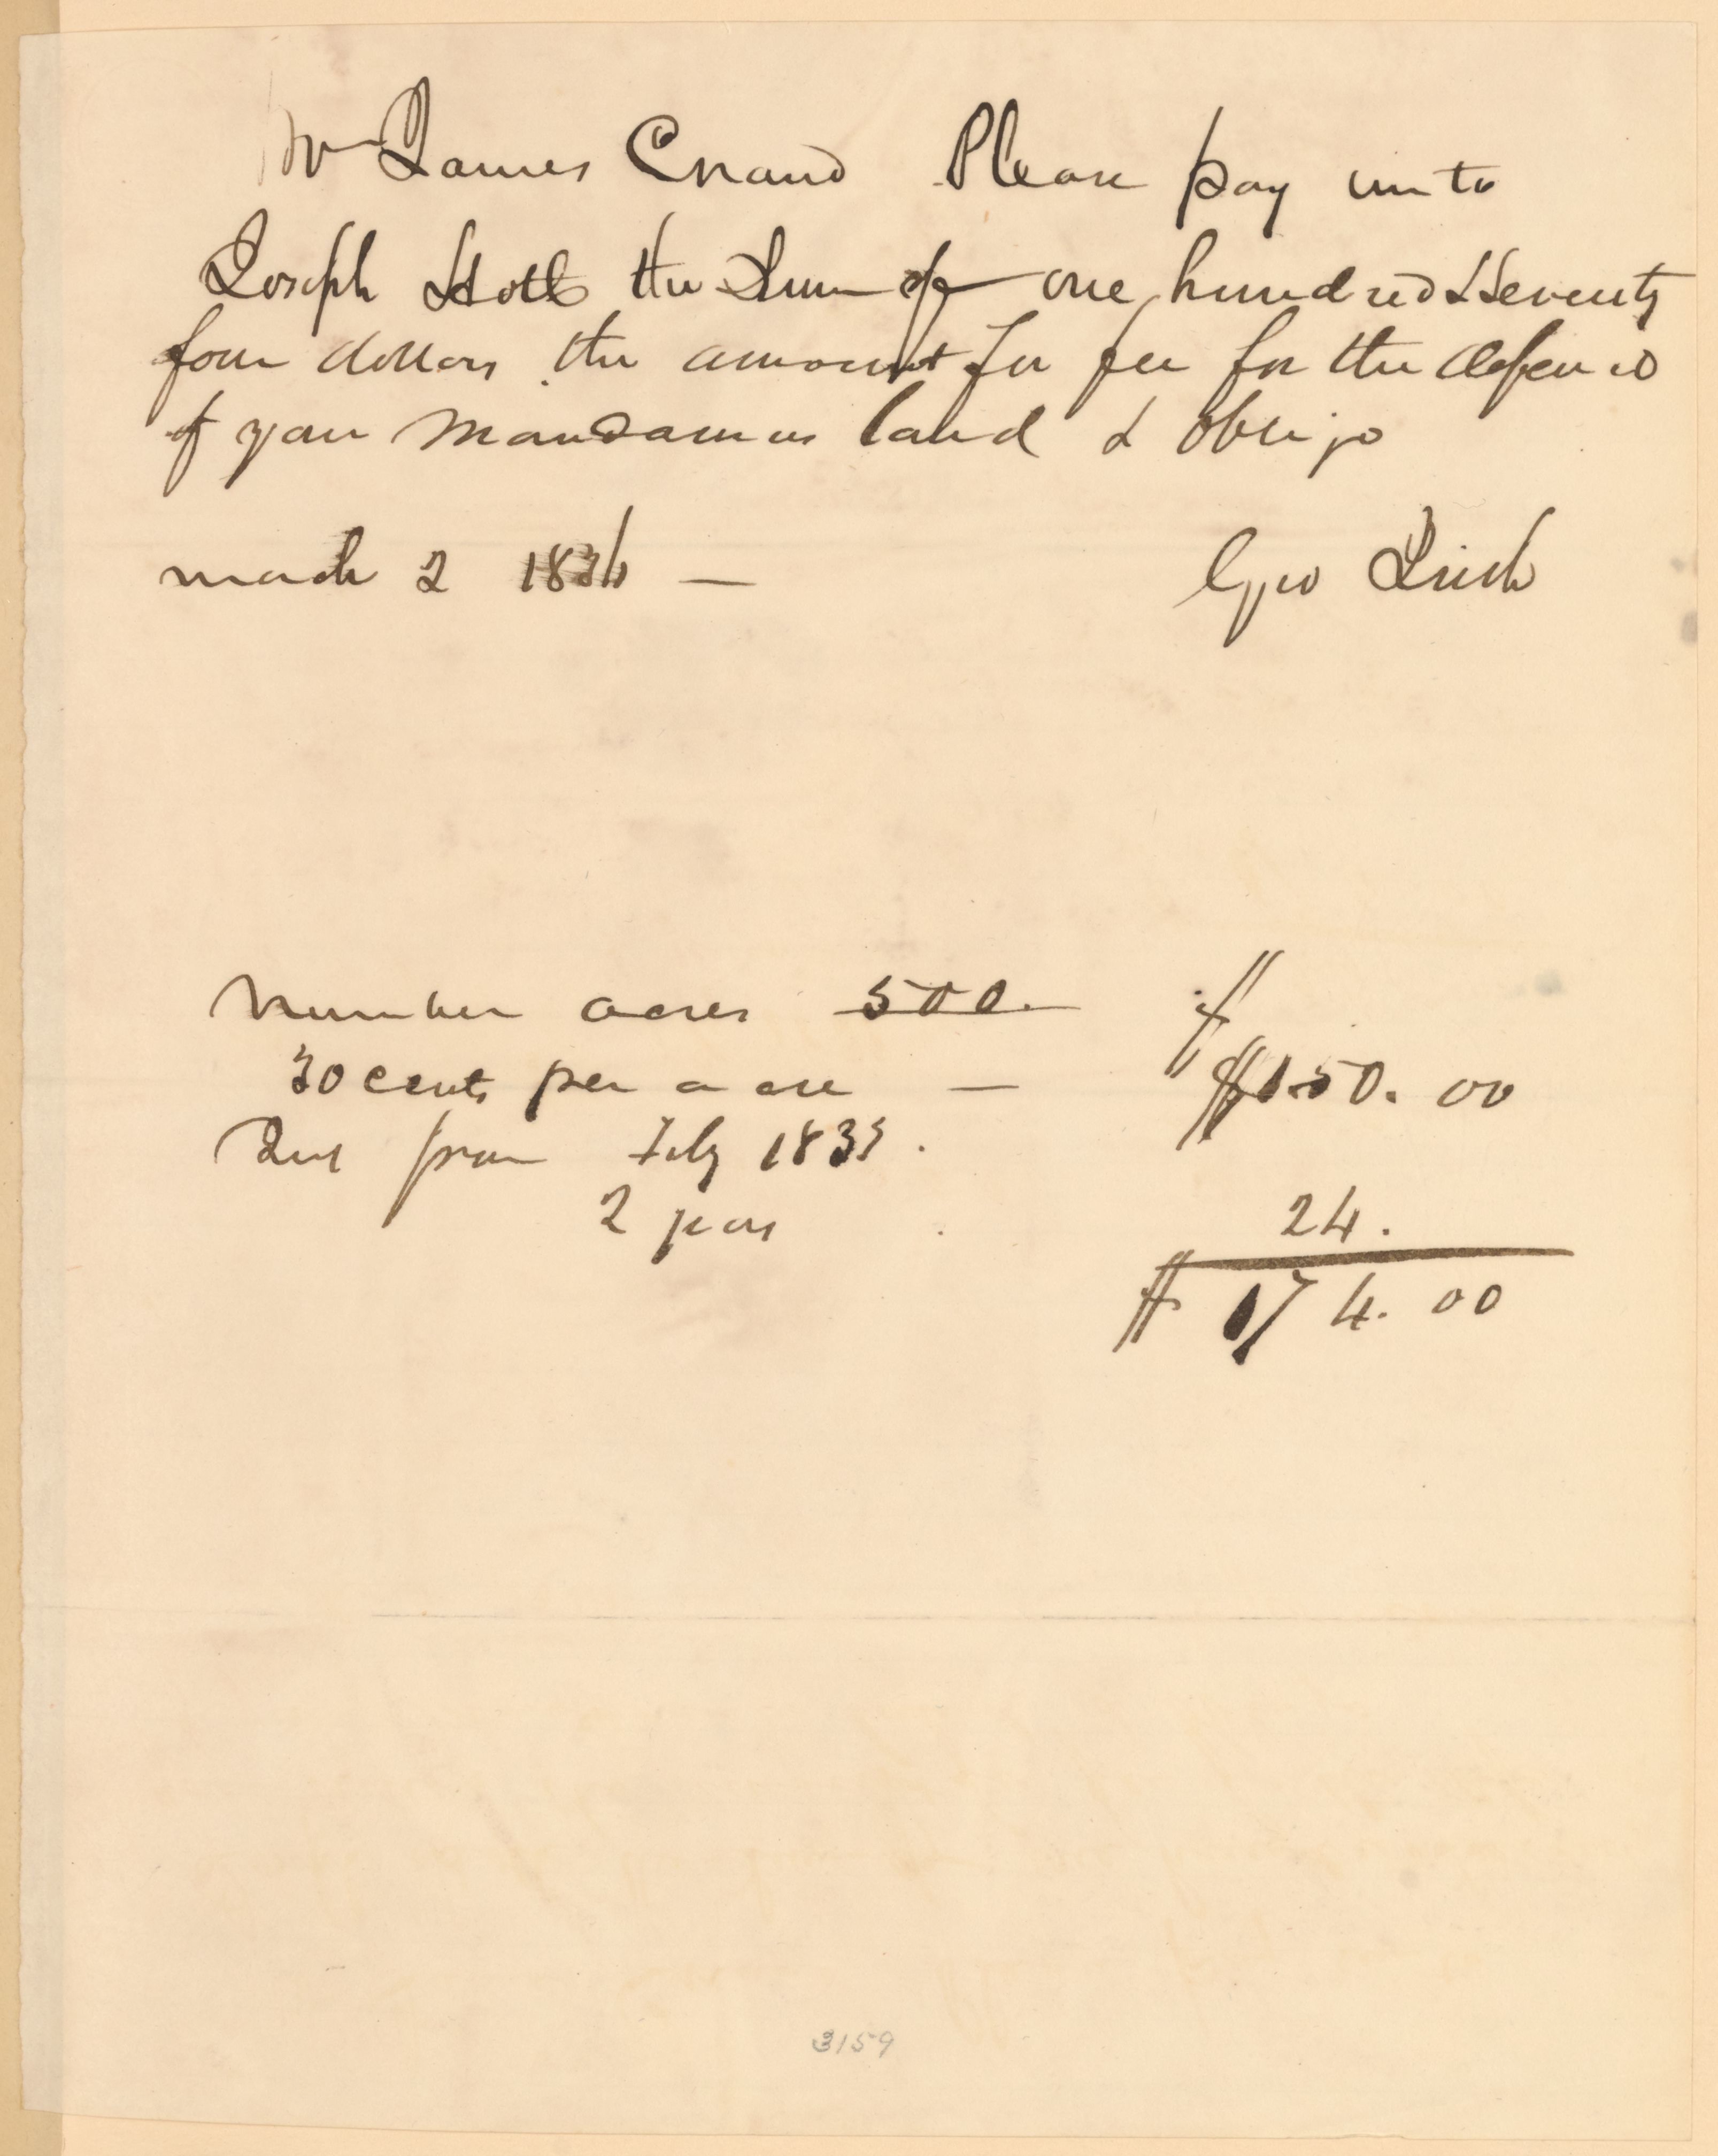 Mr James Enand Please pay unto
Joseph Holt the Sum of one hundred & Seventy
four dollars the amount for fee for the defence
of your Mandamus land & oblige
march 2 1836 —
Number acres 500. $
30 cents per acre — $150.00
Int from July 1833.
2 years 24.
$ 174.00
3159